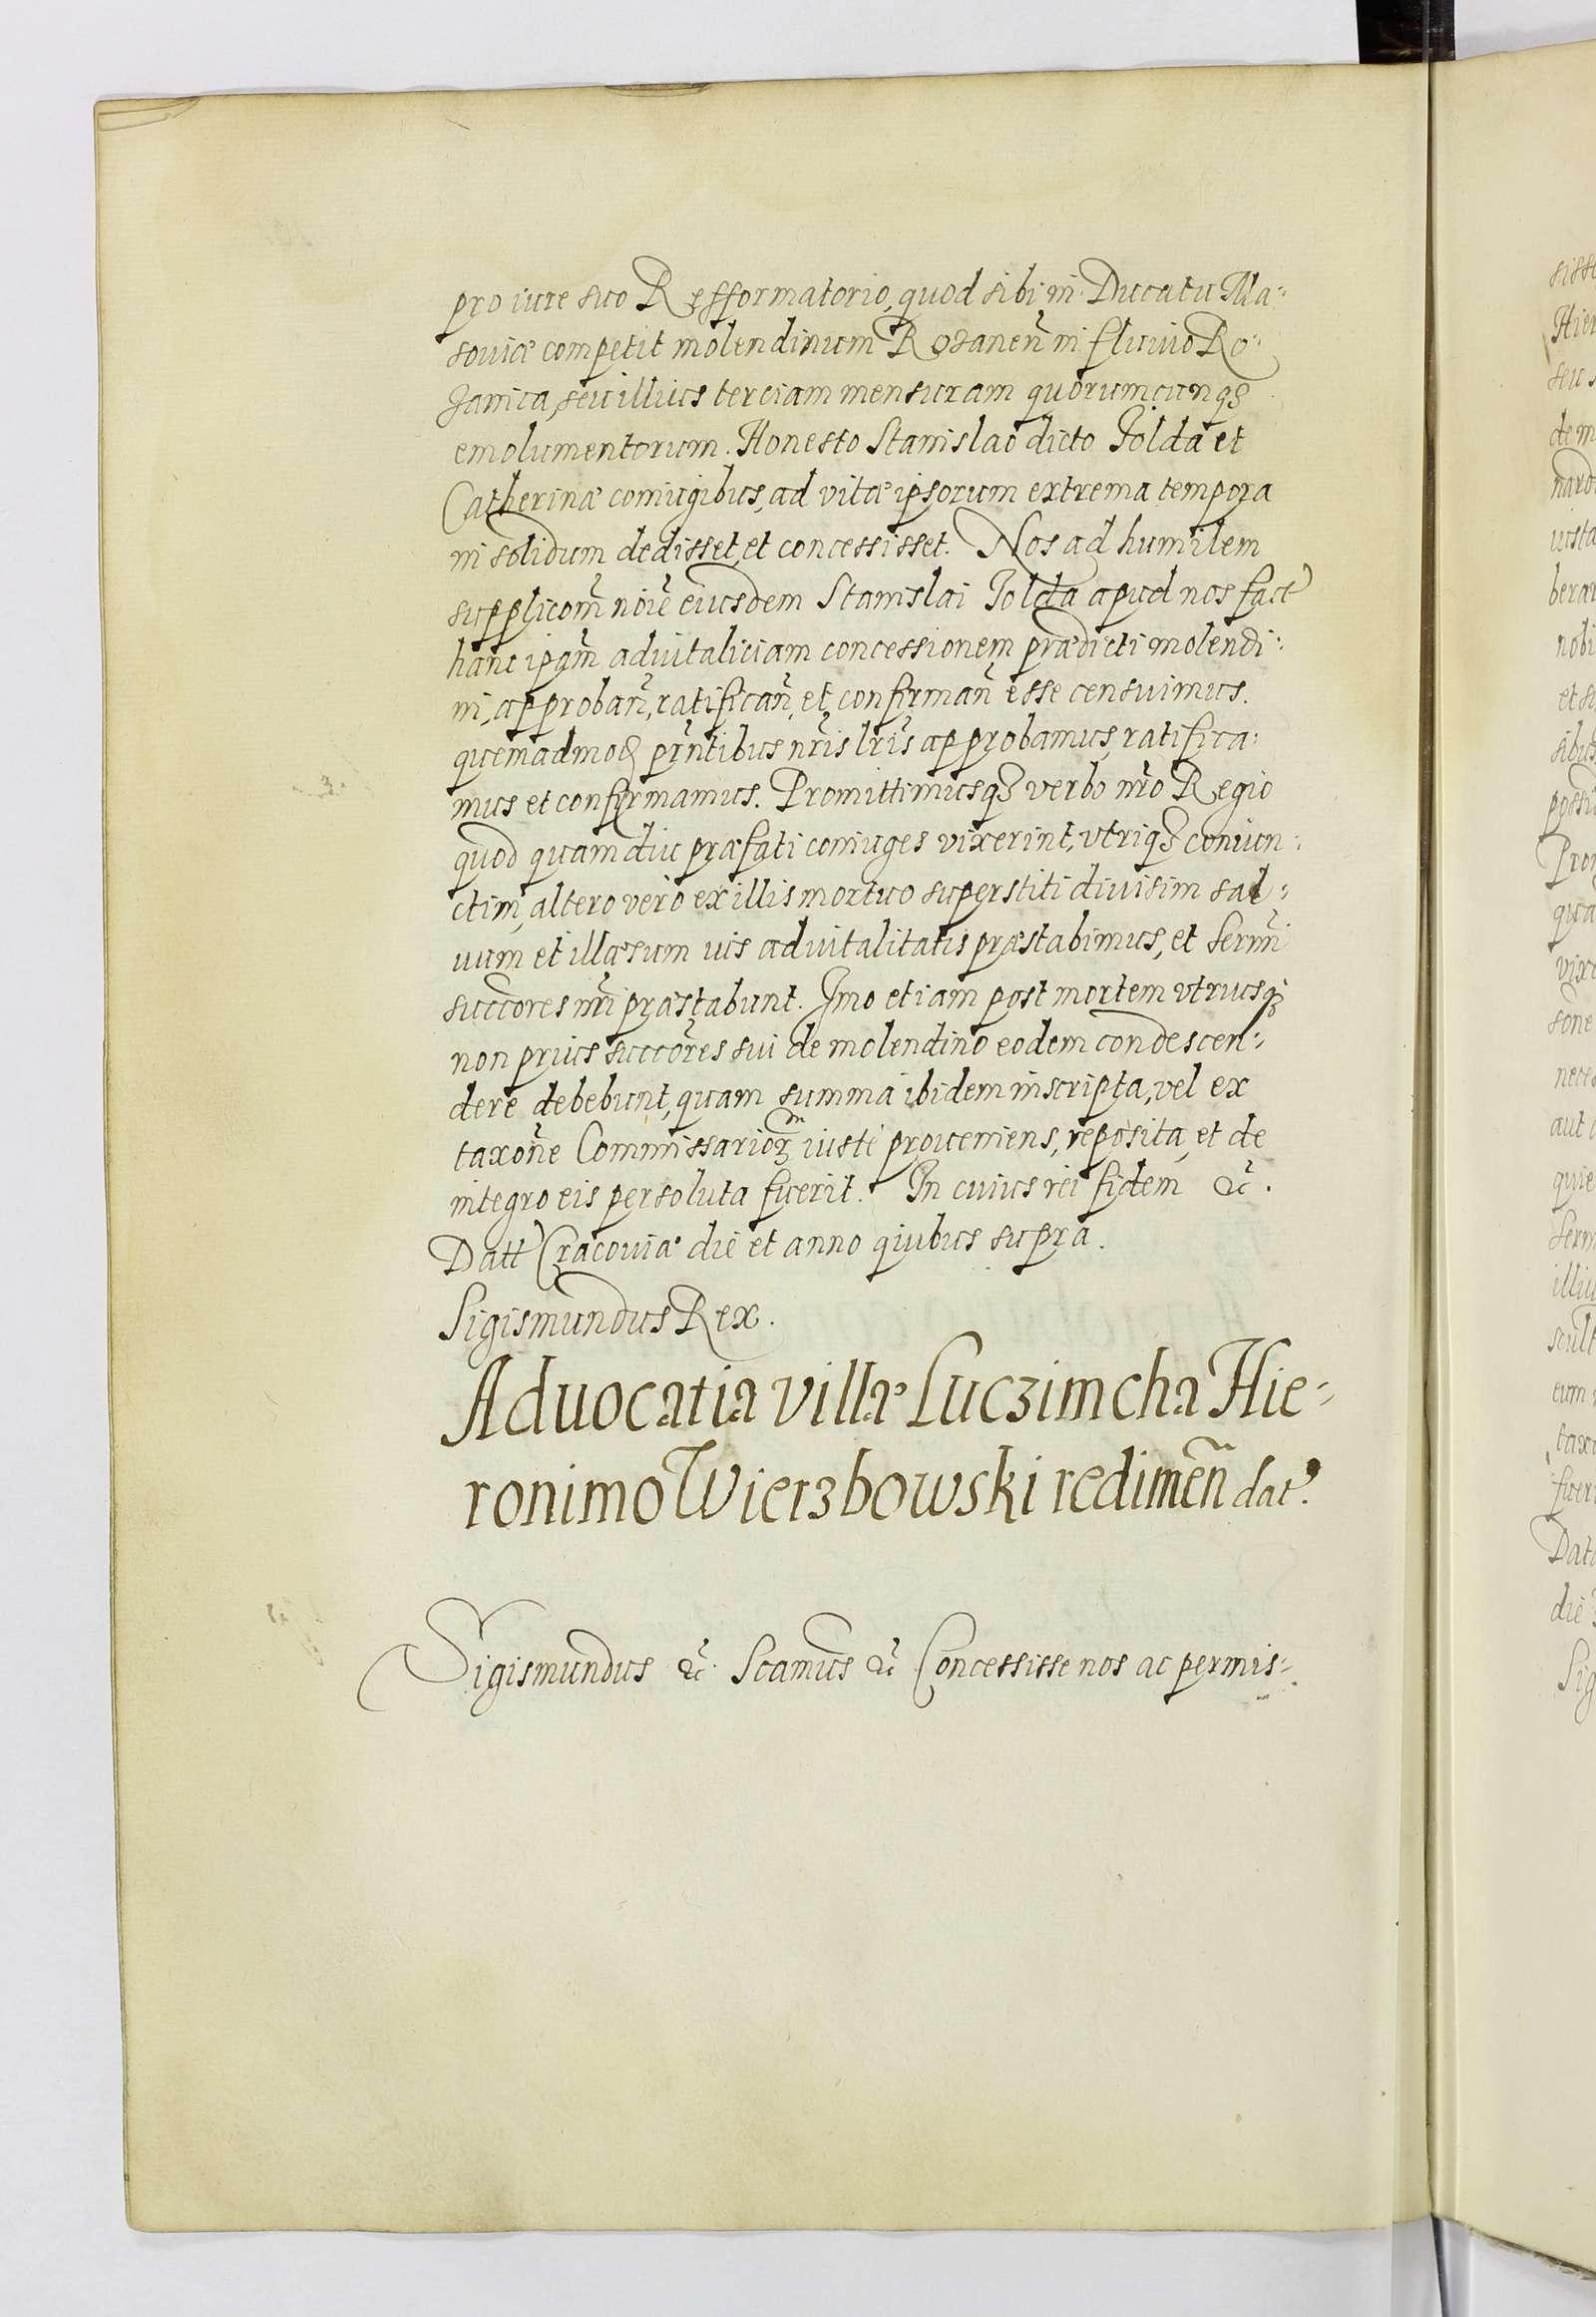 pro iure suo Refformatorio, quod sibi in Ducatu Ma⸗
souiæ competit molendinum Rosaneñ in fluuio Ro⸗
Janica, seu illius terciam mensuram quorumcunqȝ
emolumentorum. Honesto Stanislao dicto Jolda et
Catherinæ coniugibus, ad vitæ ipsorum extrema tempora
in solidum dedisset, et concessisset. Nos ad humilem
supplicom̃ noĩe eiusdem Stanislai Jolda apud nos fact
hanc ipam̃ aduitaliciam concessionem prædicti molendi⸗
ni, approbañ, ratificañ, et confirmañ esse censuimus.
quemadmoꝺ pr̃ntibus nr̃is lr̃is approbamus, ratifica⸗
mus et confirmamus. Promittimusqȝ verbo nr̃o Regio
quod quam diu præfati coniuges vixerint, vtriqȝ coniun⸗
ctim, altero vero ex illis mortuo superstiti diuisim sal⸗
uum et illæsum ius aduitalitatis præstabimus, et Serm̃i
succores nr̃i præstabunt. Imo etiam post mortem vtriusqȝ
non prius succores sui de molendino eodem condescen⸗
dere debebunt, quam summa ibidem inscripta, vel ex
taxoñe Commissarioꝝ iuste proueniens, reposita, et de
integro eis persoluta fuerit. In cuius rei fidem &c̃.
Datt Cracouiæ die et anno quibus supra.
Sigismundus Rex.
Aduocatia villæ Luczimcha Hie⸗
ronimo Wierzbowski redimeñ dat.
Sigismundus &c̃. Scamus &c̃ Concessisse nos ac permis⸗